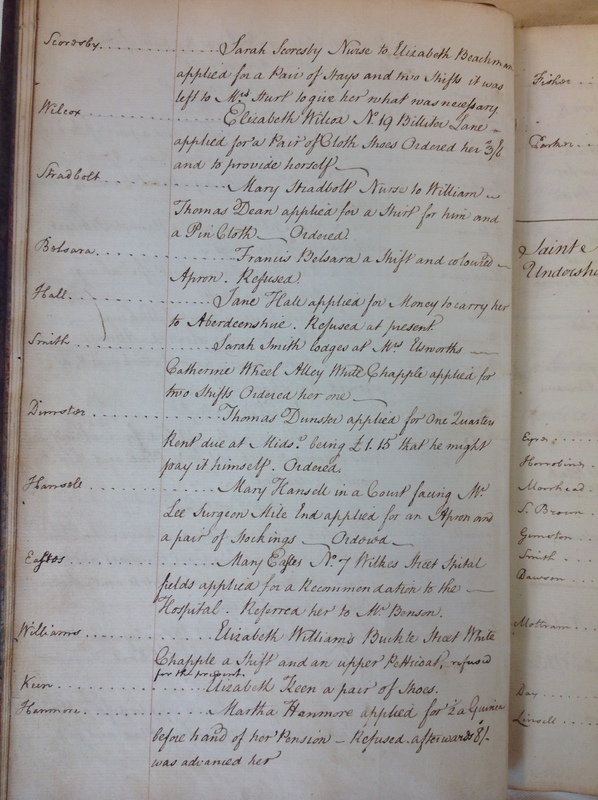 Scoresby . . . . . . Sarah Scoresby Nurse to Elizabeth Beachman
applied for a Pair of Stays and two Shifts it was
left to Mrs Hurt to give her what was necessary
Wilcox . . . . . . Elizabeth Wilcox No. 19 Billiter Lane
applied for a Pair of Cloth Shoes Ordered her 3/6
and to provide herself
Stradbolt . . . . . . Mary Stradbolt Nurse to William
Thomas Dean applied for a Shirt for him and
a Pin Cloth — Ordered
Belsara . . . . . . Francis Belsara a Shift and coloured
Apron. Refused.
Hall . . . . . . Jane Hall applied for Money to carry her
to Aberdeenshire. Refused at present
Smith . . . . . . Sarah Smith lodges at Mrs Elsworths
Catherine Wheel Alley White Chapple applied for
two Shifts Ordered her one
Dunster . . . . . . Thomas Dunster applied for One Quarters
Rent due at Mids.r being £1.15 that he might
pay it himself. Ordered.
Hansell . . . . . . Mary Hansell in a Court facing Mr
Lee Surgeon Mile End applied for an Apron and
a pair of Stockings — Ordered
Eastes . . . . . . Mary Eastes No. 7 Wilkes Street Spital
fields applied for a Recommendation to the
Hospital. Referred her to Mr Benson.
Williams . . . . . . Elizabeth Williams Buckle Street White
Chapple a Shift and an upper Petticoat, refused
for the present.
Keen . . . . . . Elizabeth Keen a pair of Shoes.
Hanmore . . . . . . Martha Hanmore applied for ½ a Guinea
before hand of her Pension — Refused afterwards 8/-
was advanced her
Fisher
Parker
Sainte
Undersha
Horrobine
Moorhead
S. Brown
Gunston
Smith
Dawson
Mottram
Day
Linsell